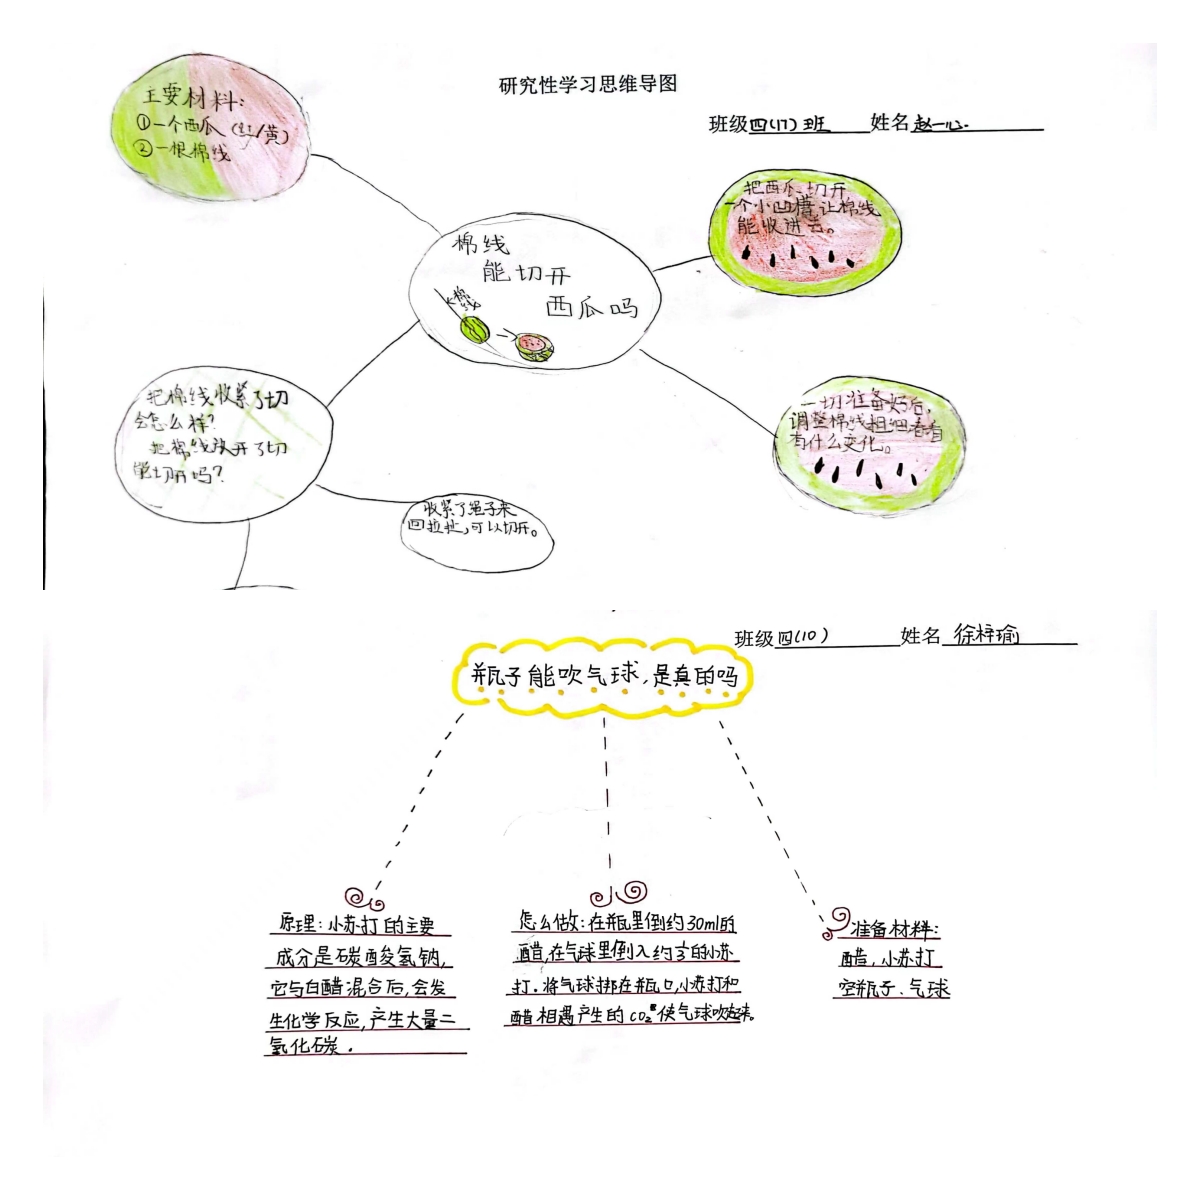 研究性学习思维导图
班级四(17)班 姓名赵一心.
主要材料:
①一个西瓜(红/黄)
②一根棉线
棉线
能切开
西瓜吗
棉线
把西瓜切开
一个小凹槽,让棉线
能收进去。
一切准备好后,
调整棉线粗细看看
有什么变化。
把棉线收紧了切
会怎么样?
把棉线放开了切
能切开吗?
收紧了绳子来
回拉拉,可以切开。
班级四(10) 姓名 徐梓瑜
瓶子能吹气球,是真的吗
原理:小苏打的主要
成分是碳酸氢钠,
它与白醋混合后,会发
生化学反应,产生大量二
氧化碳.
怎么做:在瓶里倒约30ml的
醋,在气球里倒入约⅓的小苏
打.将气球绑在瓶口,小苏打和
醋相遇产生的CO₂使气球吹起来。
准备材料:
醋,小苏打
空瓶子、气球